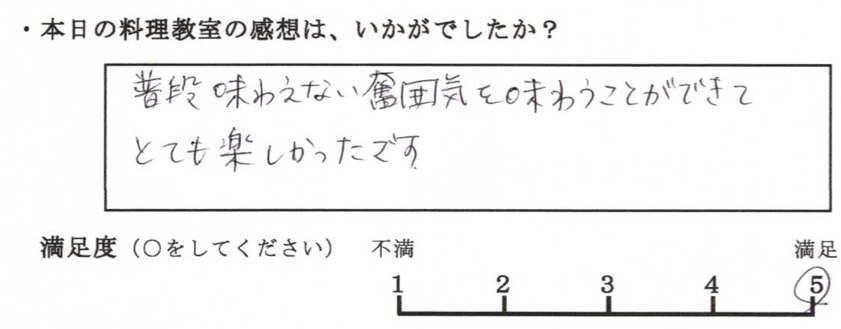 ・本日の料理教室の感想は、いかがでしたか？
普段味わえない奮囲気を味わうことができて
とても楽しかったです
満足度（○をしてください） 不満 満足
1 2 3 4 5